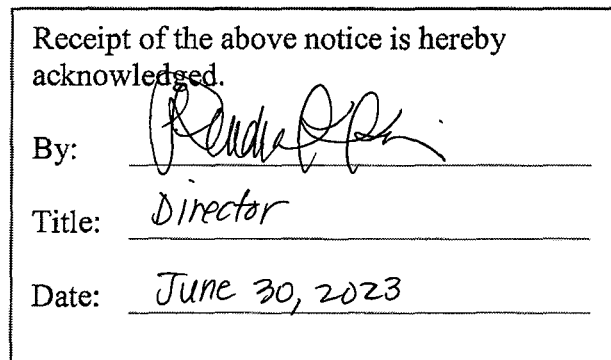 Receipt of the above notice is hereby
acknowledged.
By:
Title: Director
Date: June 30, 2023